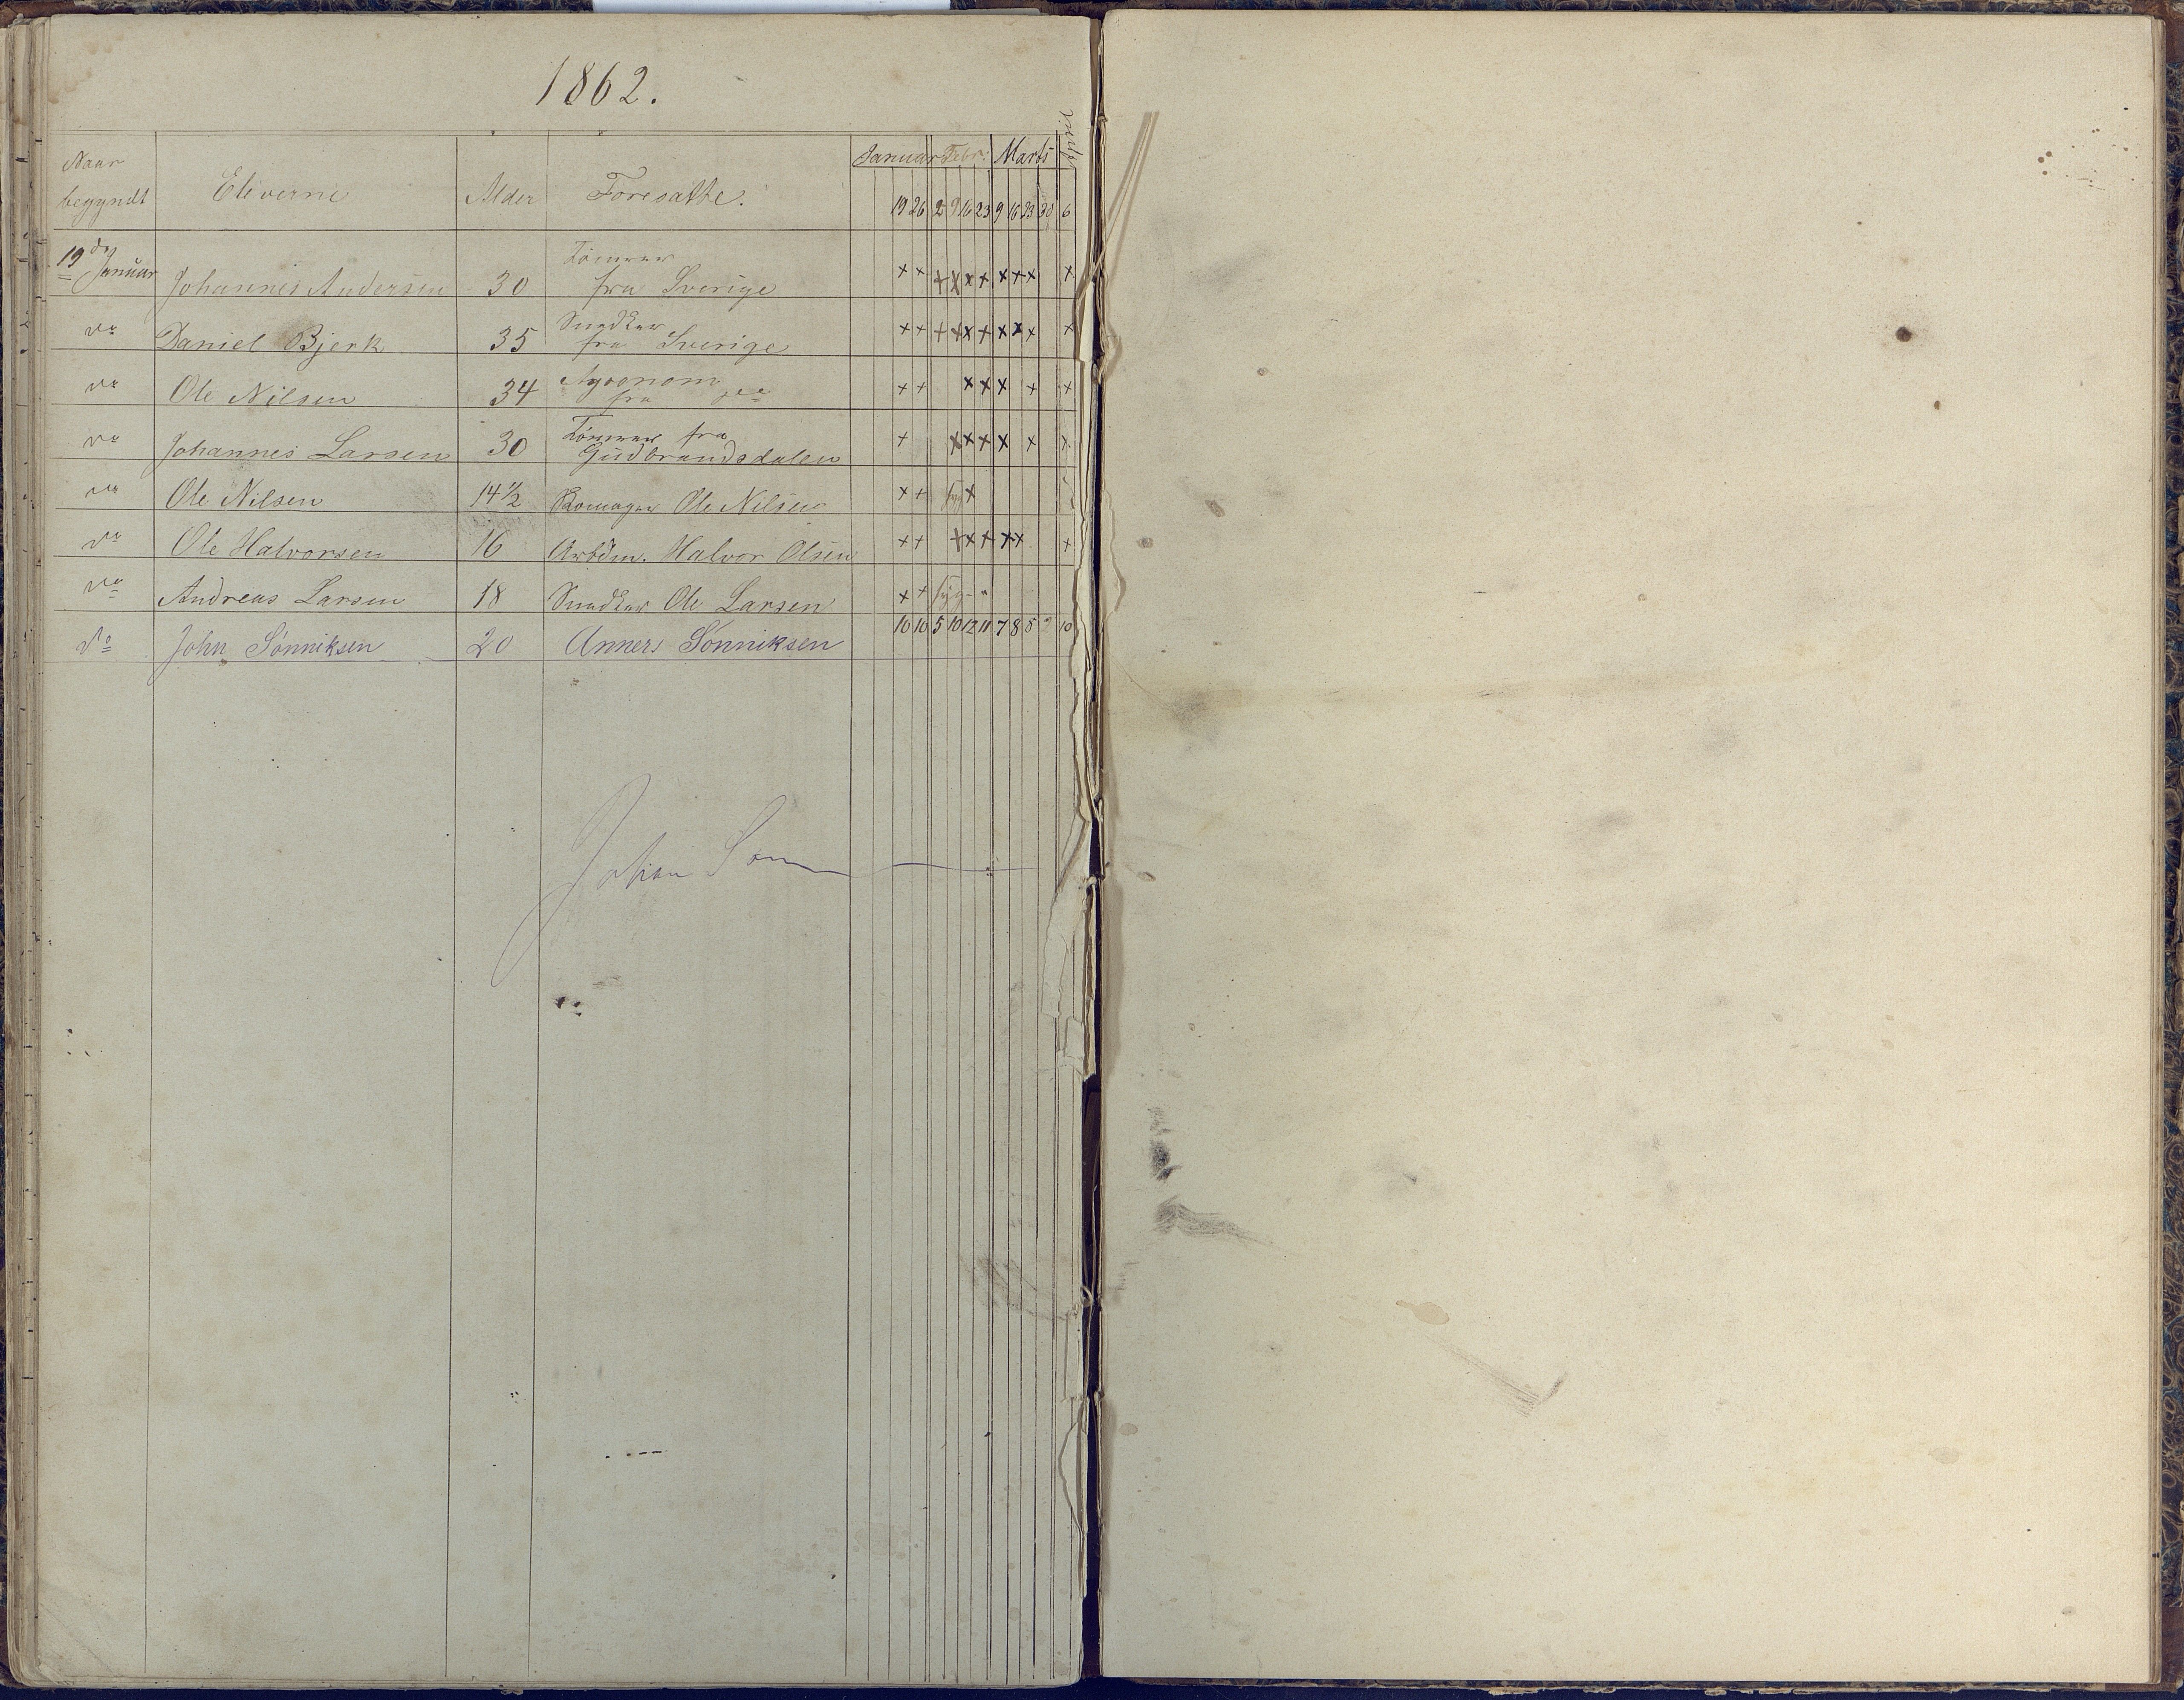 1862.
Naar begyndt Eleverne Alder Foresatte. Januar Febr: Marts April
19 26 2 9 16 23 9 16 23 30 6
19 Januar Johannes Andersen 30 Tømrer fra Sverige × × × × × × × × × ×
do Daniel Bjerk 35 Snedker fra Sverige × × × × × × × × × ×
do Ole Nilsen 34 Agronom fra do × × × × × × ×
do Johannes Larsen 30 Tømrer fra Gudbrandsdalen × × × × × × ×
do Ole Nilsen 14 1/2 Skomager Ole Nilsen × × syg ×
do Ole Halvorsen 16 Arbdm. Halvor Olsen × × × × × × × ×
do Andreas Larsen 18 Snedker Ole Larsen × × syg - "
10 10 5 10 12 11 7 8 5 10
do John Sønniksen 20 Anners Sønniksen
Johan Søn